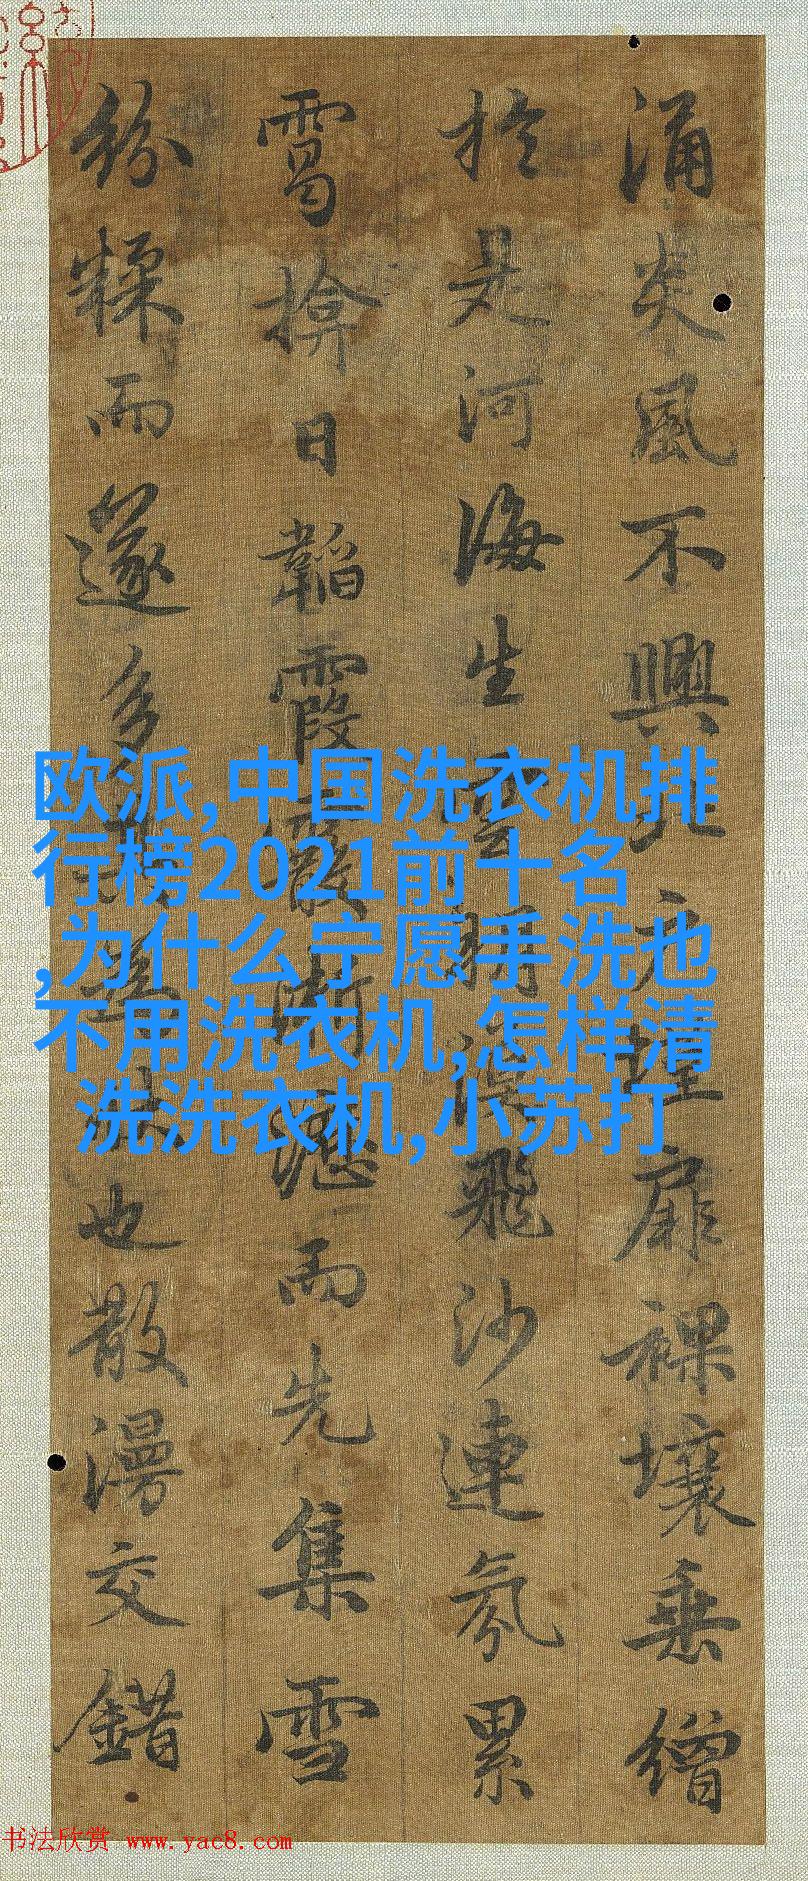 涌炎風不興北户墐扉裸壤垂繒
於是河海生雲朔漠飛沙連氛累
靄揜日韜霞霰淅瀝而先集雪
粉糅而遂多其為狀也散漫交錯
欧派,中国洗衣机排
行榜2021前十名
,为什么宁愿手洗也
不用洗衣机,怎样清
洗洗衣机,小苏打
书法欣赏 www.yac8.com